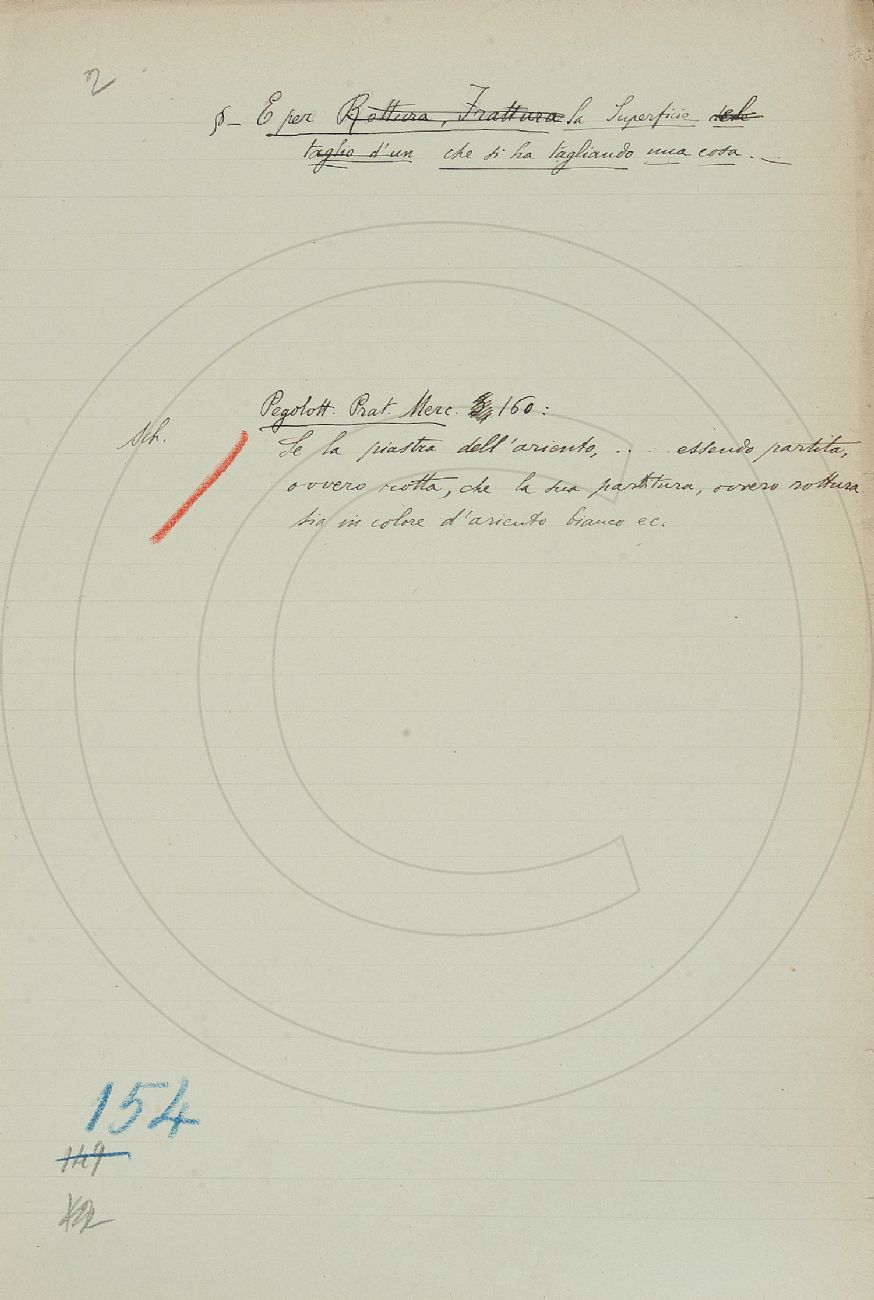 2
§ - E per Rottura, Frattura la Superficie
taglio d'un che si ha tagliando una cosa. -
Pegolott. Prat. Merc. 160:
Sch.
Se la piastra dell'ariento, .... essendo partita,
ovvero rotta, che la sua partitura, ovvero rottura
sia in colore d'ariento bianco ec.
154
149